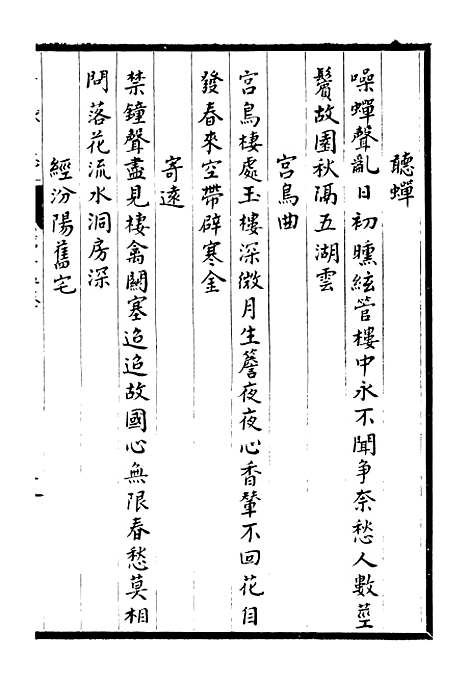 聽蟬
噪蟬聲亂日初曛絃管樓中永不聞爭奈愁人數莖
鬢故園秋隔五湖雲
宮烏曲
宮烏棲處玉樓深微月生簷夜夜心香輦不回花自
發春來空帶辟寒金
寄遠
禁鐘聲盡見棲禽關塞迢迢故國心無限春愁莫相
問落花流水洞房深
經汾陽舊宅